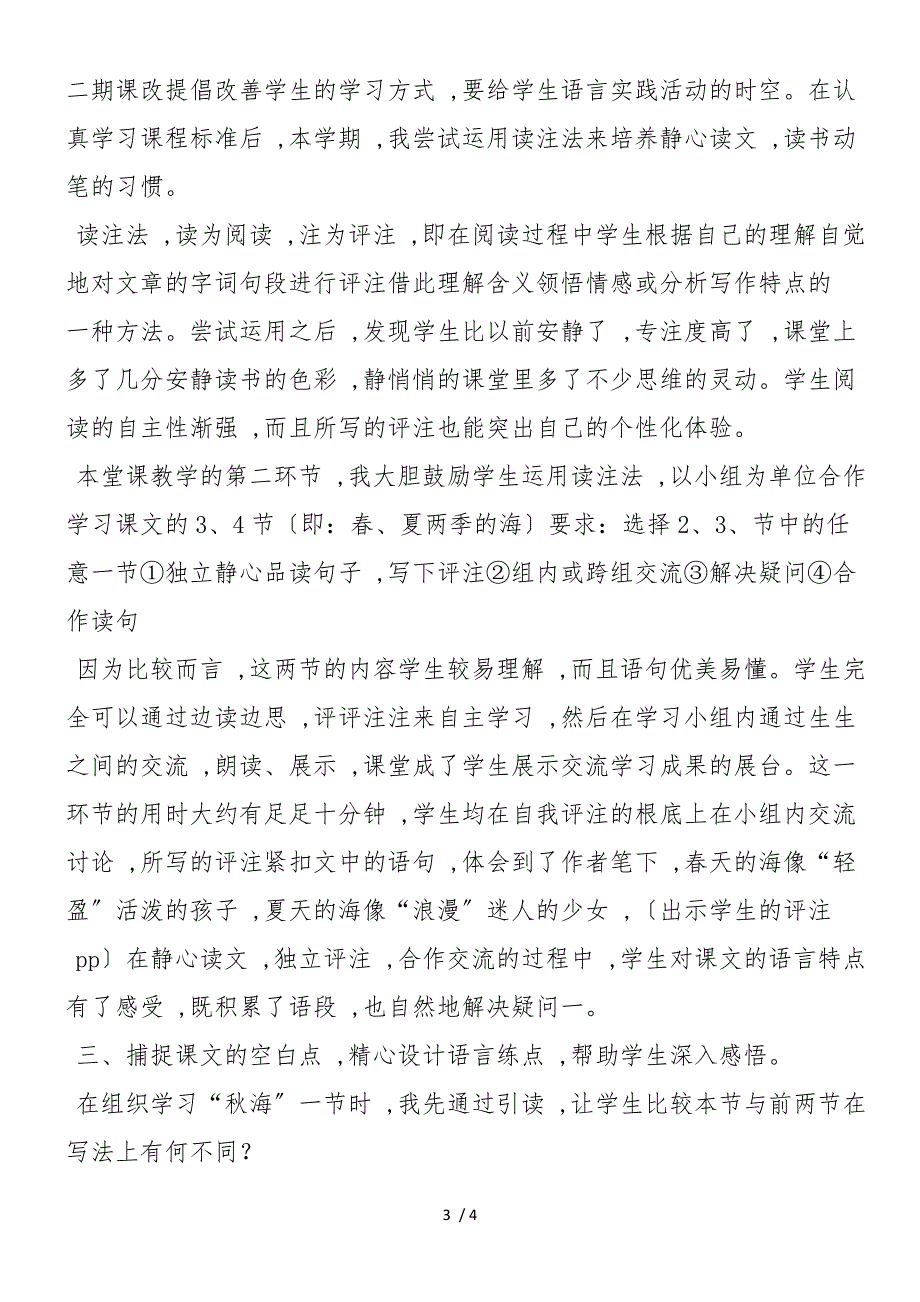 二期课改提倡改善学生的学习方式 ,要给学生语言实践活动的时空。在认
真学习课程标准后 ,本学期 ,我尝试运用读注法来培养静心读文 ,读书动
笔的习惯。
读注法 ,读为阅读 ,注为评注 ,即在阅读过程中学生根据自己的理解自觉
地对文章的字词句段进行评注借此理解含义领悟情感或分析写作特点的
一种方法。尝试运用之后 ,发现学生比以前安静了 ,专注度高了 ,课堂上
多了几分安静读书的色彩 ,静悄悄的课堂里多了不少思维的灵动。学生阅
读的自主性渐强 ,而且所写的评注也能突出自己的个性化体验。
本堂课教学的第二环节 ,我大胆鼓励学生运用读注法 ,以小组为单位合作
学习课文的3、4节〔即：春、夏两季的海〕要求：选择2、3、节中的任
意一节①独立静心品读句子 ,写下评注②组内或跨组交流③解决疑问④合
作读句
因为比较而言 ,这两节的内容学生较易理解 ,而且语句优美易懂。学生完
全可以通过边读边思 ,评评注注来自主学习 ,然后在学习小组内通过生生
之间的交流 ,朗读、展示 ,课堂成了学生展示交流学习成果的展台。这一
环节的用时大约有足足十分钟 ,学生均在自我评注的根底上在小组内交流
讨论 ,所写的评注紧扣文中的语句 ,体会到了作者笔下 ,春天的海像“轻
盈〞活泼的孩子 ,夏天的海像“浪漫〞迷人的少女 ,〔出示学生的评注
pp〕在静心读文 ,独立评注 ,合作交流的过程中 ,学生对课文的语言特点
有了感受 ,既积累了语段 ,也自然地解决疑问一。
三、捕捉课文的空白点 ,精心设计语言练点 ,帮助学生深入感悟。
在组织学习“秋海〞一节时 ,我先通过引读 ,让学生比较本节与前两节在
写法上有何不同？
3 / 4